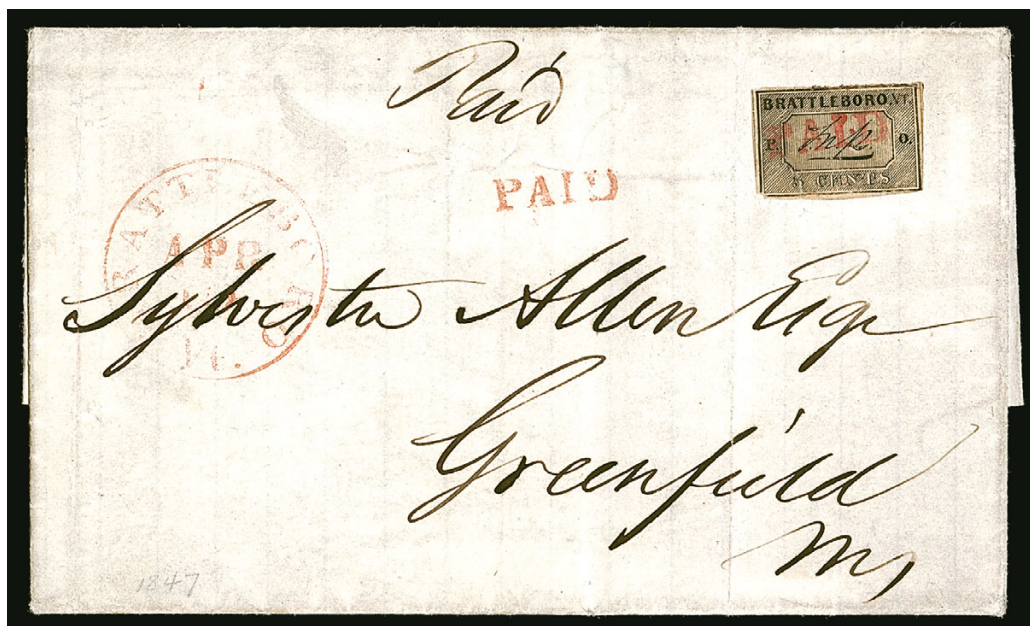 Paid
BRATTLEBORO, VT.
P. PAID O.
5 CENTS
PAID
BRATTLEBORO
APR
Vt.
Sylvester Allen Esqr
Greenfield
Ms
1847